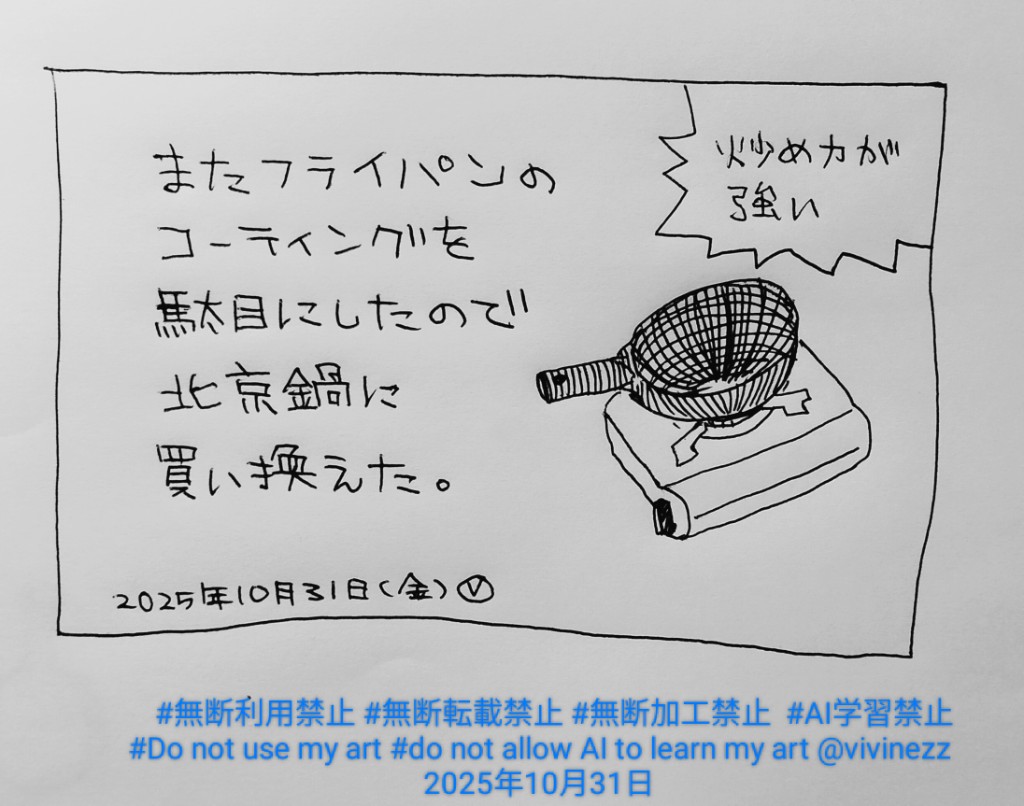 またフライパンの
コーティングを
駄目にしたので
北京鍋に
買い換えた。
炒め力が
強い
2025年10月31日(金)Ⓥ
#無断利用禁止 #無断転載禁止 #無断加工禁止 #AI学習禁止
#Do not use my art #do not allow AI to learn my art @vivinezz
2025年10月31日